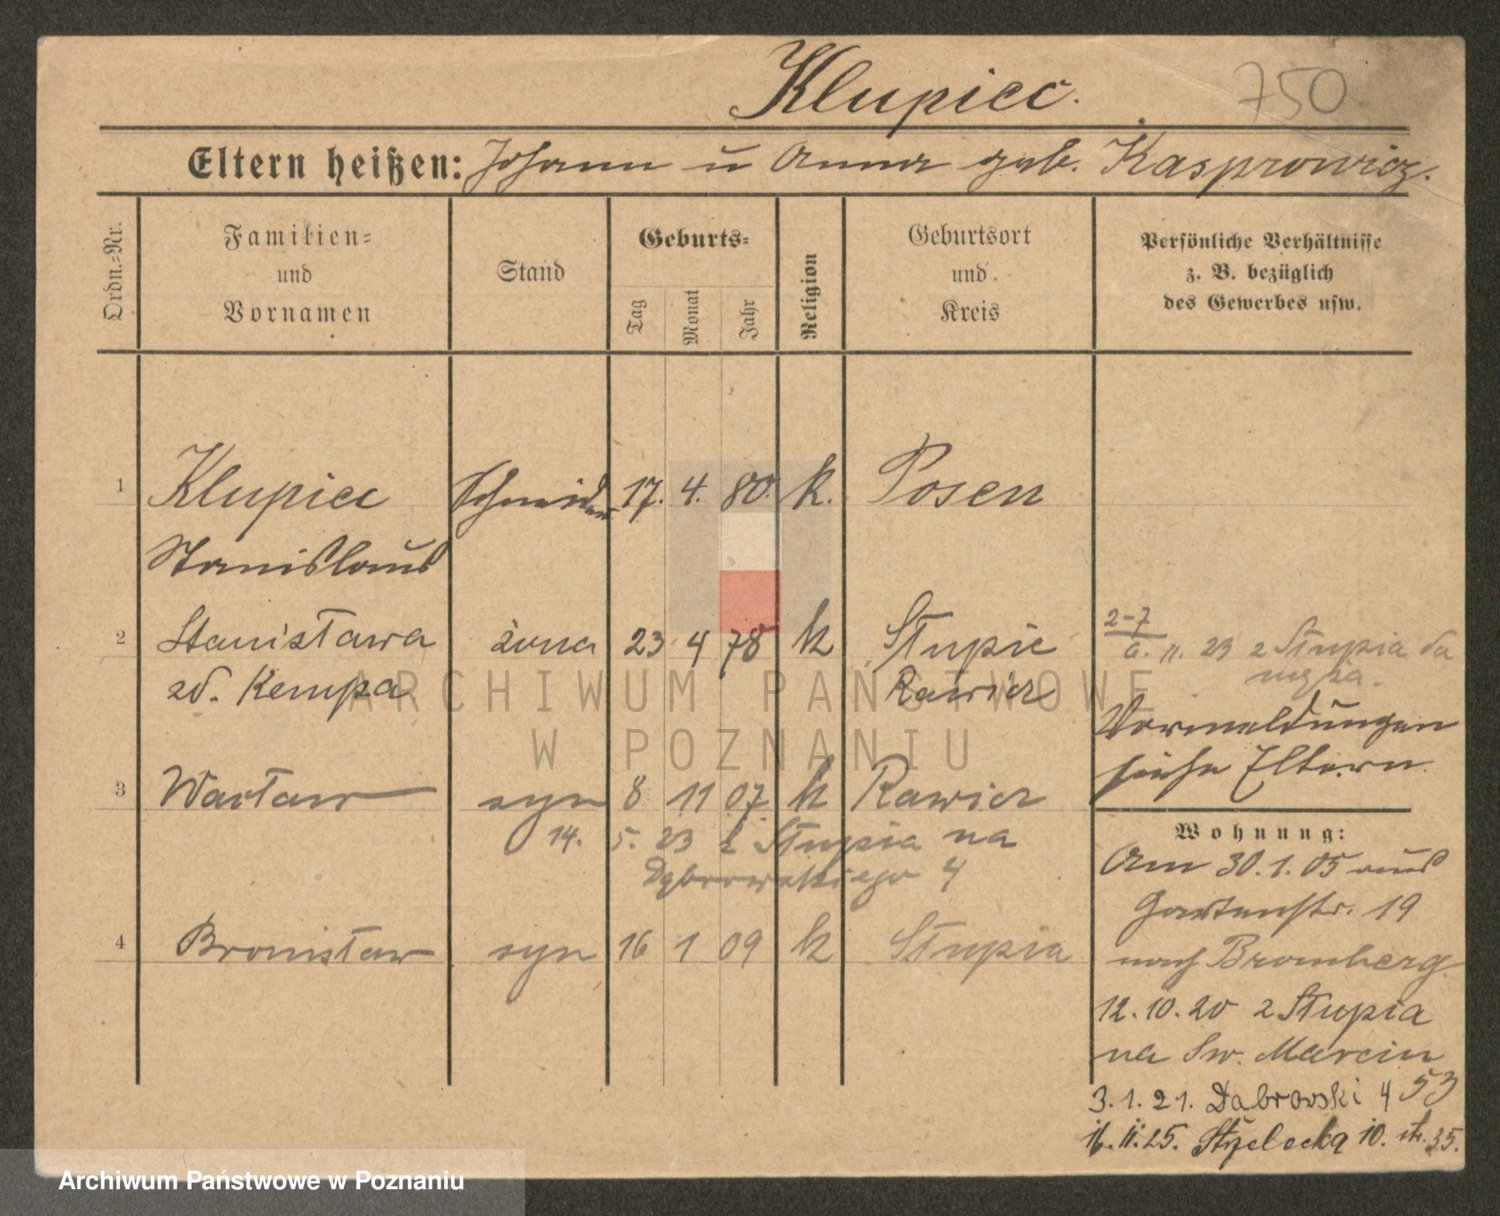 Klupiec.
750
Eltern heißen: Johann u Anna geb. Kasprowicz.
Ordn.-Nr.
Familien- und Vornamen
Stand
Geburts-
Tag
Monat
Jahr
Religion
Geburtsort und Kreis
Persönliche Verhältnisse
z. B. bezüglich
des Gewerbes usw.
1 Klupiec Schneider 17. 4. 80. k. Posen
Stanislaus
2 Stanisława żona 23 4 78 k Stupie
zd. Kempa Rawicz
2-7
6. 11. 23 z Stupia da
męża.
Vormeldungen
siehe Eltern.
3 Wacław syn 8 11 07 k Rawicz
14. 5. 23 z Stupia na
Dąbrowskiego 4
4 Bronisław syn 16 1 09 k Stupia
Wohnung:
Am 30.1.05 aus
Gartenstr. 19
nach Bromberg.
12.10.20 z Stupia
na Św. Marcin
53
3.1.21. Dąbrowski 4
16.11.25. Strzelecka 10. 35.
ARCHIWUM PAŃSTWOWE
W POZNANIU
Archiwum Państwowe w Poznaniu